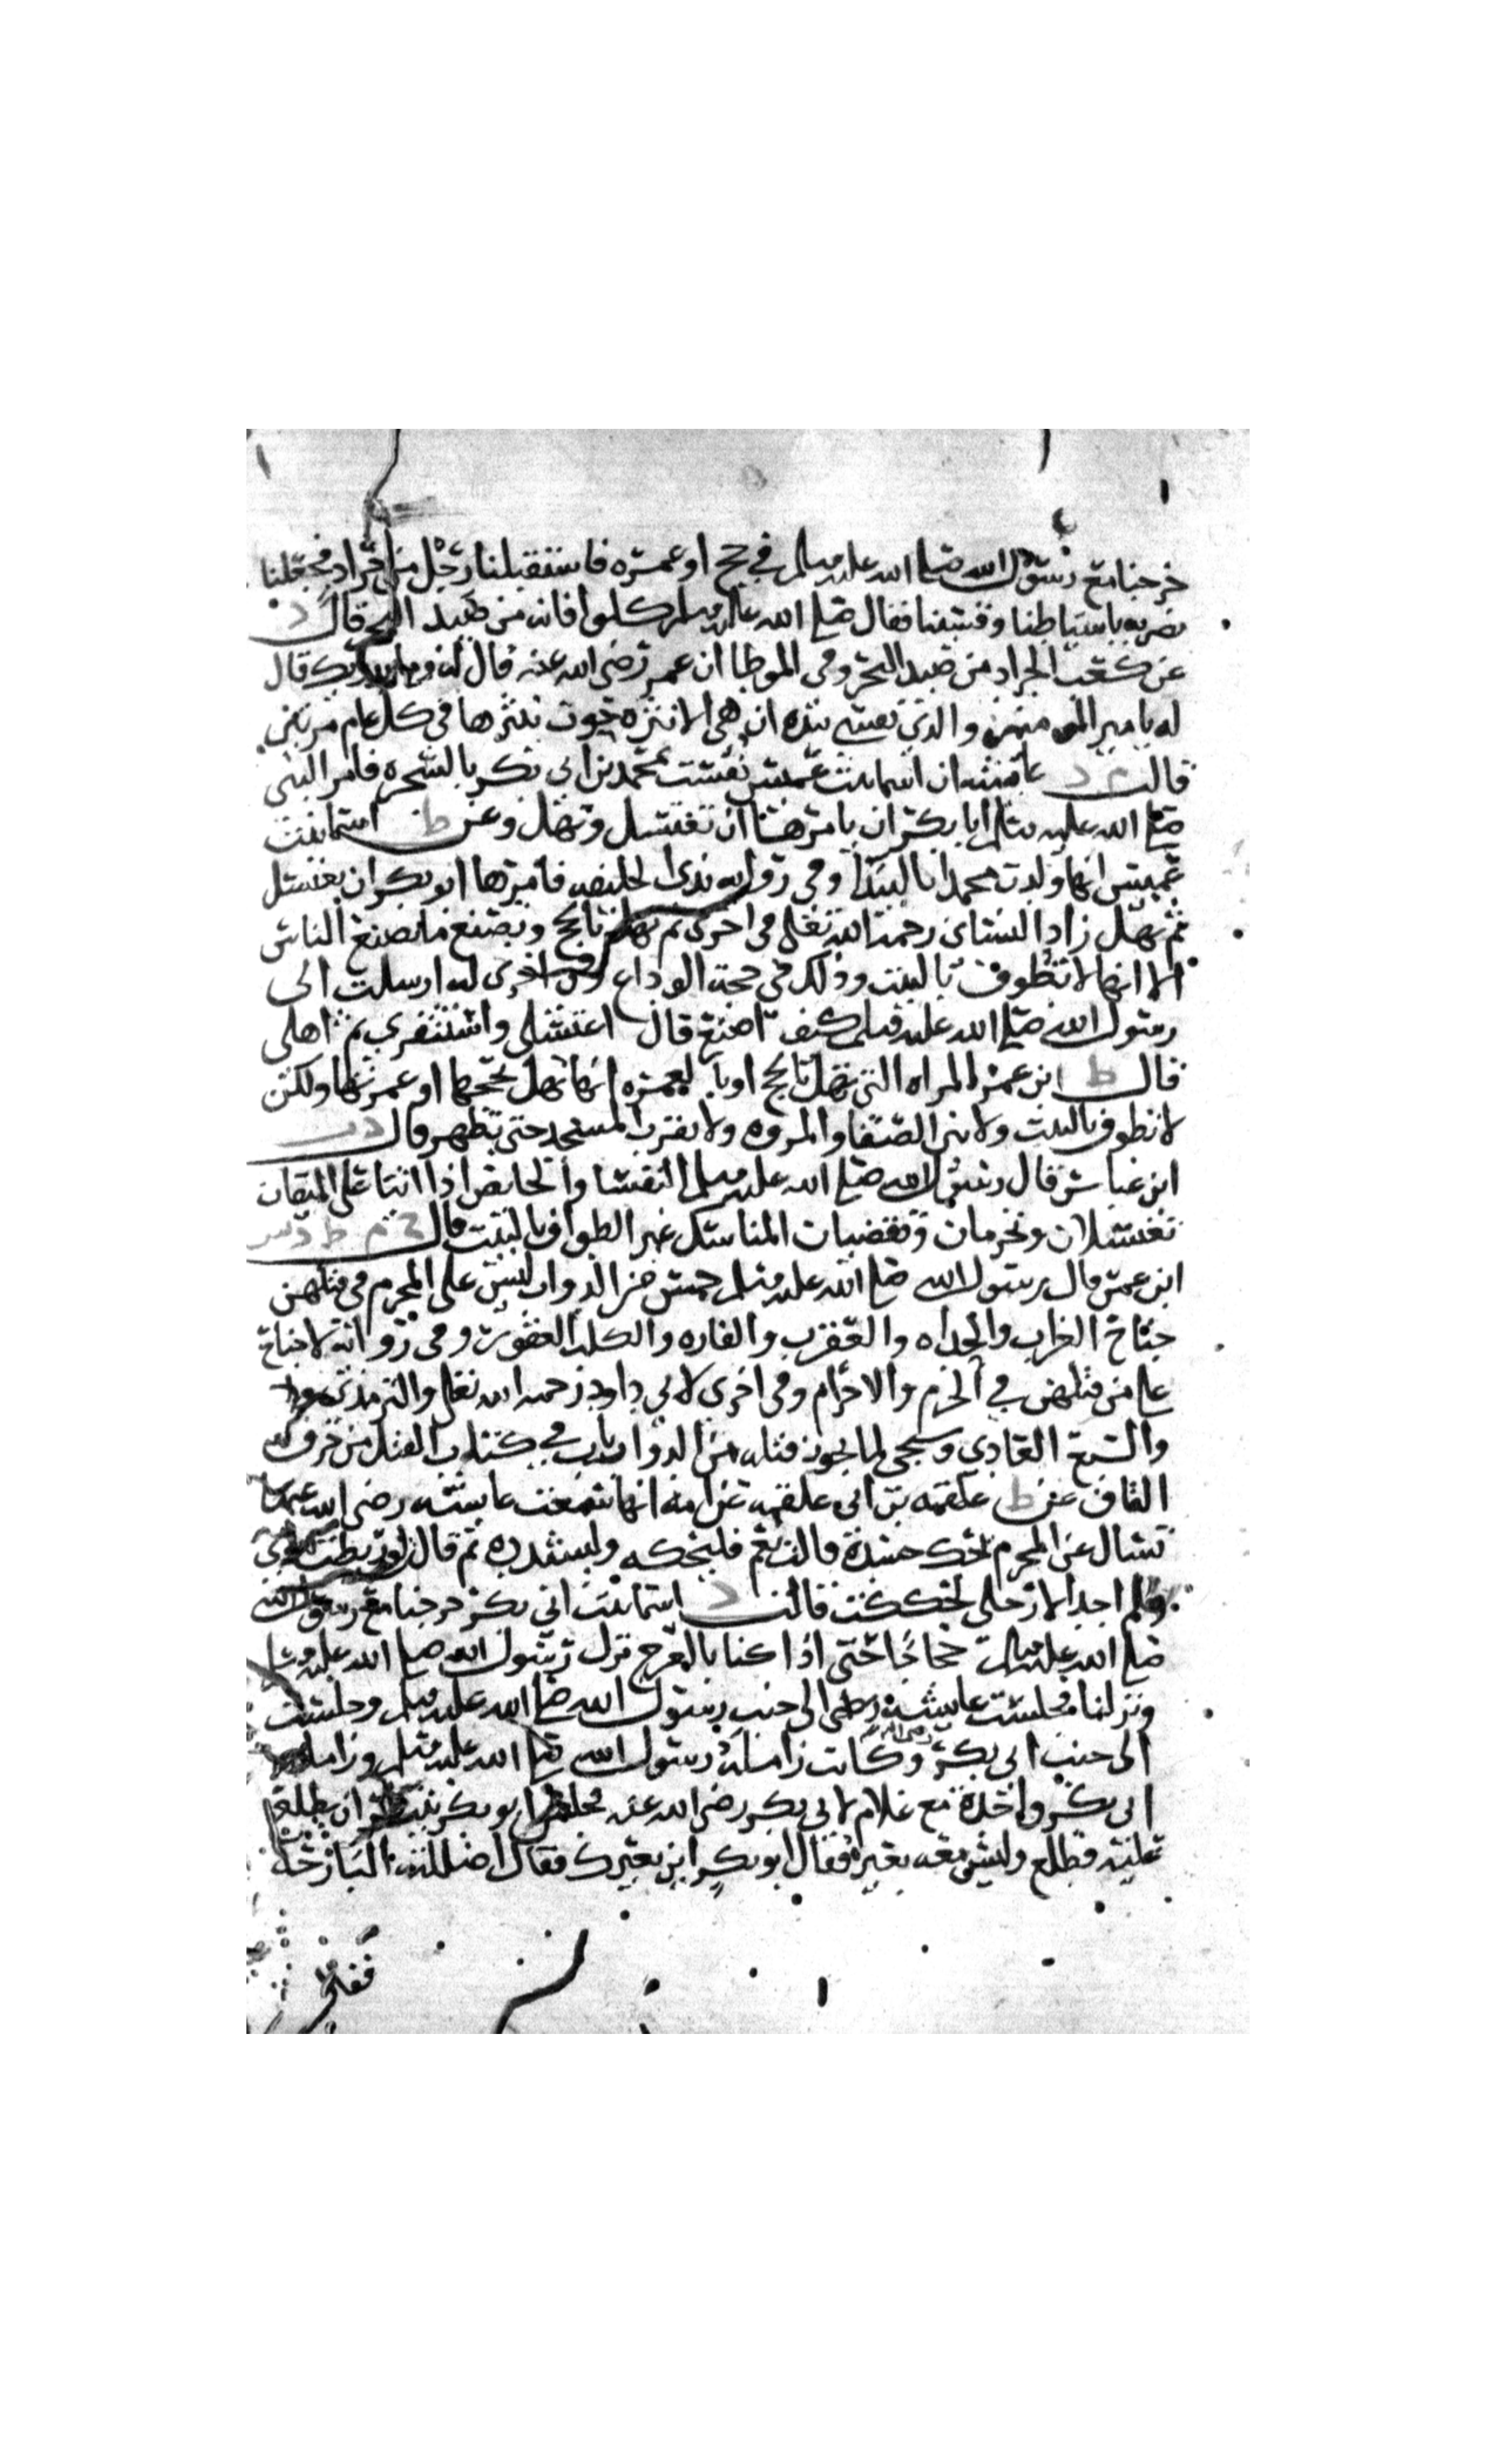 خرجنا مع رسول الله صلى الله عليه وسلم في حج او عمره فاستقبلنا رجل من جراد فجعلنا
نضربه باسياطنا وقسينا فقال صلى الله عليه وسلم كلوا فانه من صيد البحر قال د
عن كعب الجراد من صيد البحر وفي الموطا ان عمر رضي الله عنه قال له وما يدريك قال
له يا مير المومنين والذي نفسي بيده ان هي الا نثره حوت ينثرها في كل عام مرتين
قالت م د عائشه ان اسما بنت عميس نفست بمحمد بن ابي بكر بالشجره فامر النبي
صلى الله عليه وسلم ابا بكر ان يامرها ان تغتسل وتهل وعن ط اسما بنت
عميس انها ولدت محمدا بالبيدا وفي روايه بذي الحليفه فامرها ابو بكر ان تغتسل
ثم تهل زاد النساي رحمه الله تعالى في اخرى ثم تهل بالحج وتصنع ما يصنع الناس
الا انها لا تطوف بالبيت وذلك في حجة الوداع وفي اخرى له ارسلت الى
رسول الله صلى الله عليه وسلم كيف اصنع قال اغتسلي واستثفري ثم اهلي
قال ط ابن عمر المراه التي تهل بالحج او بالعمره انها تهل بحجها او عمرتها ولكن
لا تطوف بالبيت ولا بين الصفا والمروه ولا تقرب المسجد حتى تطهر قال د ت
ابن عباس قال رسول الله صلى الله عليه وسلم النفسا والحايض اذا اتتا على الميقات
تغتسلان وتحرمان وتقضيان المناسك غير الطواف بالبيت قال خ م ط د س
ابن عمر قال رسول الله صلى الله عليه وسلم خمس من الدواب ليس على المحرم في قتلهن
جناح الغراب والحداه والعقرب والفاره والكلب العقور وفي روايه لا جناح
على من قتلهن في الحرم والاحرام وفي اخرى لابي داود رحمه الله تعالى والترمذي
والسبع العادي وسيجي لما يجوز قتله من الدواب باب في كتاب القتل من حرف
القاف عن ط علقمه بن ابي علقمه عن امه انها سمعت عايشه رضي الله عنها
تسال عن المحرم يحك جسده قالت نعم فليحكه وليشدده ثم قال لو ربطت يدي
ولم اجد الا رجلي لحككت قالت د اسما بنت ابي بكر خرجنا مع رسول الله
صلى الله عليه وسلم حجاجا حتى اذا كنا بالعرج نزل رسول الله صلى الله عليه وسلم
ونزلنا فجلست عايشه الى جنب رسول الله صلى الله عليه وسلم وجلست
الى جنب ابي بكر رضي الله عنه وكانت زاملة رسول الله صلى الله عليه وسلم وزاملة
ابي بكر واحده مع غلام لابي بكر رضي الله عنه فجلس ابو بكر ينتظر ان يطلع
عليه فطلع وليس معه بعيره فقال ابو بكر اين بعيرك فقال اضللته البارحه
فقال